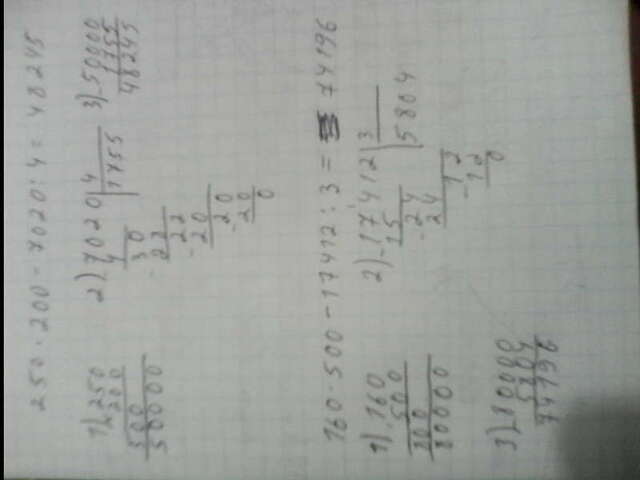 250·200-7020:4=48245
1) ×250
200
500
50000
2) 7020 4
4 1755
30
- 28
22
- 20
20
- 20
0
3) -50000
1755
48245
160·500-17412:3= 74196
1) ·160
500
800
80000
2) -17412 3
15 5804
-24
24
-12
12
0
3) -80000
5804
74196